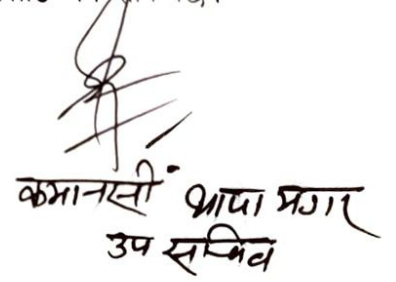 कमानसीं थापा मगर
उप सचिव